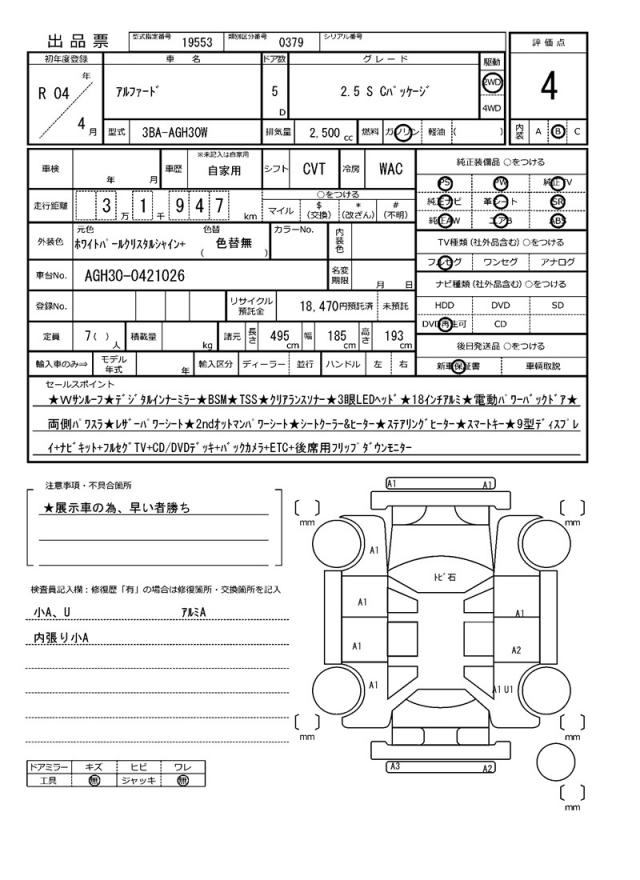 出品票 型式指定番号 19553 類別区分番号 0379 シリアル番号
評価点
4
内装 A B C
初年度登録 車名 ドア数 グレード 駆動
R 04 年 4 月
アルファード 5 D 2.5 S Cパッケージ 2WD
4WD
型式 3BA-AGH30W 排気量 2,500 cc 燃料 ガソリン 軽油 ( )
車検 年 月 車歴 ※未記入は自家用 自家用 シフト CVT 冷房 WAC
走行距離 3 万 1 千 9 4 7 km
○をつける
マイル $(交換) *(改ざん) #(不明)
外装色 元色 ホワイトパールクリスタルシャイン+ 色替 ( 色替無 ) カラーNo. 内装色
車台No. AGH30-0421026 名変期限 月 日
登録No. リサイクル預託金 18,470円預託済 未預託
定員 7( ) 人 積載量 kg 諸元 長さ 495 cm 幅 185 cm 高さ 193 cm
輸入車のみ⇒ モデル年式 年 輸入区分 ディーラー 並行 ハンドル 左 右
純正装備品 ○をつける
PS PW 純正TV
純正ナビ 革シート SR
純正AW エアB ABS
TV種類(社外品含む)○をつける
フルセグ ワンセグ アナログ
ナビ種類(社外品含む)○をつける
HDD DVD SD
DVD再生可 CD
後日発送品 ○をつける
新車保証書 車輌取説
セールスポイント
★Wサンルーフ★デジタルインナーミラー★BSM★TSS★クリアランスソナー★3眼LEDヘッド★18インチアルミ★電動パワーバックドア★
両側パワスラ★レザーパワーシート★2ndオットマンパワーシート★シートクーラー&ヒーター★ステアリングヒーター★スマートキー★9型ディスプレ
イ+ナビキット+フルセグTV+CD/DVDデッキ+バックカメラ+ETC+後席用フリップダウンモニター
注意事項・不具合箇所
★展示車の為、早い者勝ち
検査員記入欄:修復歴「有」の場合は修復箇所・交換箇所を記入
小A、U アルミA
内張り小A
ドアミラー キズ ヒビ ワレ
工具 無 ジャッキ 無
A1 A1
mm mm
A1
トビ石
A1 A1
A1 A2
A1 A1 U1
mm mm
A3 A2
mm